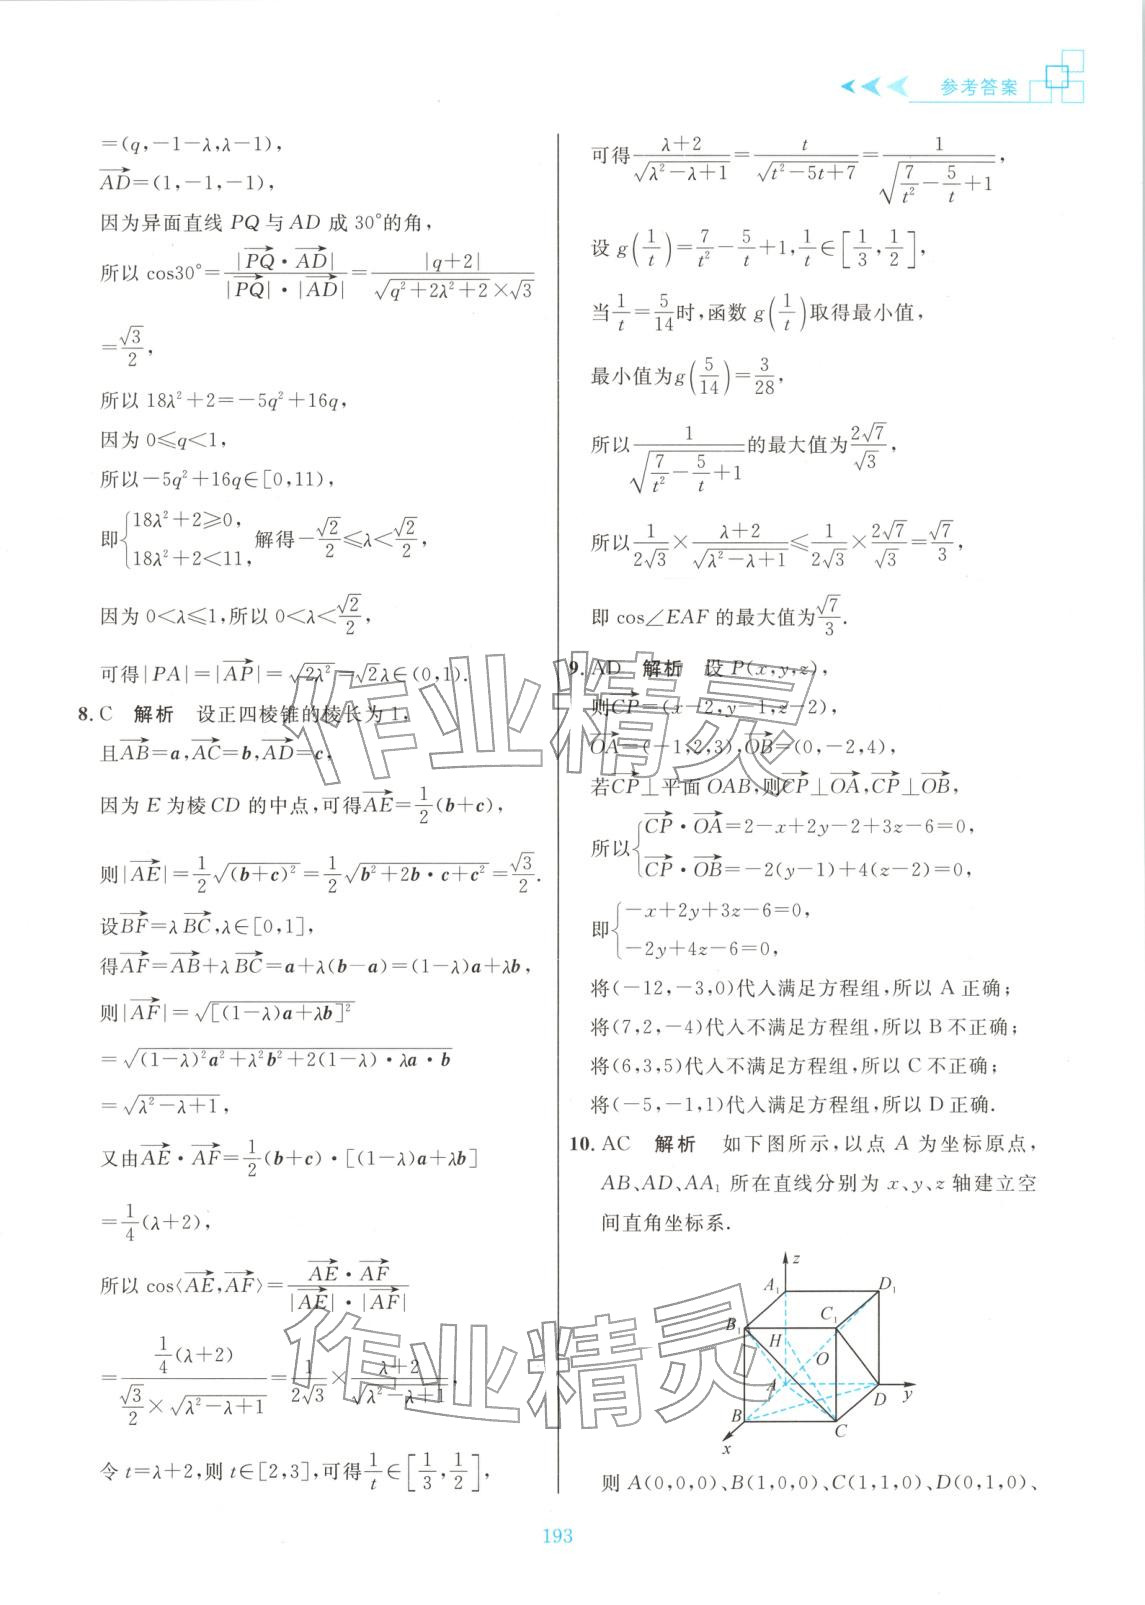 参考答案
=(q,-1-λ,λ-1),
\overrightarrow{AD}=(1,-1,-1),
因为异面直线 PQ 与 AD 成 30°的角,
所以 cos30°=\frac{|\overrightarrow{PQ}·\overrightarrow{AD}|}{|\overrightarrow{PQ}|·|\overrightarrow{AD}|}=\frac{|q+2|}{\sqrt{q²+2λ²+2}×\sqrt{3}}
=\frac{\sqrt{3}}{2},
所以 18λ²+2=-5q²+16q,
因为 0≤q<1,
所以-5q²+16q∈[0,11),
即{18λ²+2≥0,
18λ²+2<11, 解得-\frac{\sqrt{2}}{2}≤λ<\frac{\sqrt{2}}{2},
因为 0<λ≤1,所以 0<λ<\frac{\sqrt{2}}{2},
可得|PA|=|\overrightarrow{AP}|=\sqrt{2λ²}=\sqrt{2}λ∈(0,1).
8. C 解析 设正四棱锥的棱长为 1,
且\overrightarrow{AB}=a,\overrightarrow{AC}=b,\overrightarrow{AD}=c,
因为 E 为棱 CD 的中点,可得\overrightarrow{AE}=\frac{1}{2}(b+c),
则|\overrightarrow{AE}|=\frac{1}{2}\sqrt{(b+c)²}=\frac{1}{2}\sqrt{b²+2b·c+c²}=\frac{\sqrt{3}}{2}.
设\overrightarrow{BF}=λ\overrightarrow{BC},λ∈[0,1],
得\overrightarrow{AF}=\overrightarrow{AB}+λ\overrightarrow{BC}=a+λ(b-a)=(1-λ)a+λb,
则|\overrightarrow{AF}|=\sqrt{[(1-λ)a+λb]²}
=\sqrt{(1-λ)²a²+λ²b²+2(1-λ)·λa·b}
=\sqrt{λ²-λ+1},
又由\overrightarrow{AE}·\overrightarrow{AF}=\frac{1}{2}(b+c)·[(1-λ)a+λb]
=\frac{1}{4}(λ+2),
所以 cos⟨\overrightarrow{AE},\overrightarrow{AF}⟩=\frac{\overrightarrow{AE}·\overrightarrow{AF}}{|\overrightarrow{AE}|·|\overrightarrow{AF}|}
=\frac{\frac{1}{4}(λ+2)}{\frac{\sqrt{3}}{2}×\sqrt{λ²-λ+1}}=\frac{1}{2\sqrt{3}}×\frac{λ+2}{\sqrt{λ²-λ+1}}.
令 t=λ+2,则 t∈[2,3],可得\frac{1}{t}∈[\frac{1}{3},\frac{1}{2}],
可得\frac{λ+2}{\sqrt{λ²-λ+1}}=\frac{t}{\sqrt{t²-5t+7}}=\frac{1}{\sqrt{\frac{7}{t²}-\frac{5}{t}+1}},
设 g(\frac{1}{t})=\frac{7}{t²}-\frac{5}{t}+1,\frac{1}{t}∈[\frac{1}{3},\frac{1}{2}],
当\frac{1}{t}=\frac{5}{14}时,函数 g(\frac{1}{t})取得最小值,
最小值为g(\frac{5}{14})=\frac{3}{28},
所以\frac{1}{\sqrt{\frac{7}{t²}-\frac{5}{t}+1}}的最大值为\frac{2\sqrt{7}}{\sqrt{3}},
所以\frac{1}{2\sqrt{3}}×\frac{λ+2}{\sqrt{λ²-λ+1}}≤\frac{1}{2\sqrt{3}}×\frac{2\sqrt{7}}{\sqrt{3}}=\frac{\sqrt{7}}{3},
即 cos∠EAF 的最大值为\frac{\sqrt{7}}{3}.
9. AD 解析 设 P(x,y,z),
则\overrightarrow{CP}=(x-2,y-1,z-2),
\overrightarrow{OA}=(-1,2,3),\overrightarrow{OB}=(0,-2,4),
若\overrightarrow{CP}⊥平面 OAB,则\overrightarrow{CP}⊥\overrightarrow{OA},\overrightarrow{CP}⊥\overrightarrow{OB},
所以{\overrightarrow{CP}·\overrightarrow{OA}=2-x+2y-2+3z-6=0,
\overrightarrow{CP}·\overrightarrow{OB}=-2(y-1)+4(z-2)=0,
即{-x+2y+3z-6=0,
-2y+4z-6=0,
将(-12,-3,0)代入满足方程组,所以 A 正确;
将(7,2,-4)代入不满足方程组,所以 B 不正确;
将(6,3,5)代入不满足方程组,所以 C 不正确;
将(-5,-1,1)代入满足方程组,所以 D 正确.
10. AC 解析 如下图所示,以点 A 为坐标原点,
AB、AD、AA₁ 所在直线分别为 x、y、z 轴建立空
间直角坐标系.
z
A₁ D₁
B₁ C₁
H
O
A D y
B C
x
则 A(0,0,0)、B(1,0,0)、C(1,1,0)、D(0,1,0)、
193
作业精灵
作业精灵